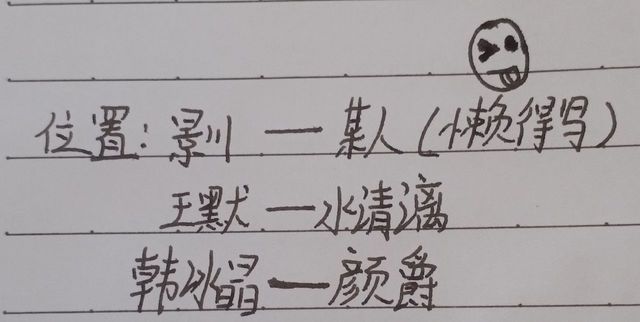 位置:景川一某人(懒得写)
王默一水清漓
韩冰晶一颜爵